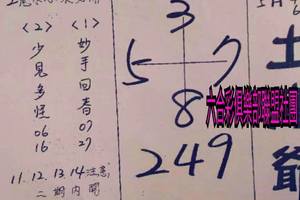 <2> <1>
少見多怪 06 16
妙手回春 07 27
11.12.13.14注意
二期內開
3
5 7
8
249
六合彩俱樂部聯盟社團
土